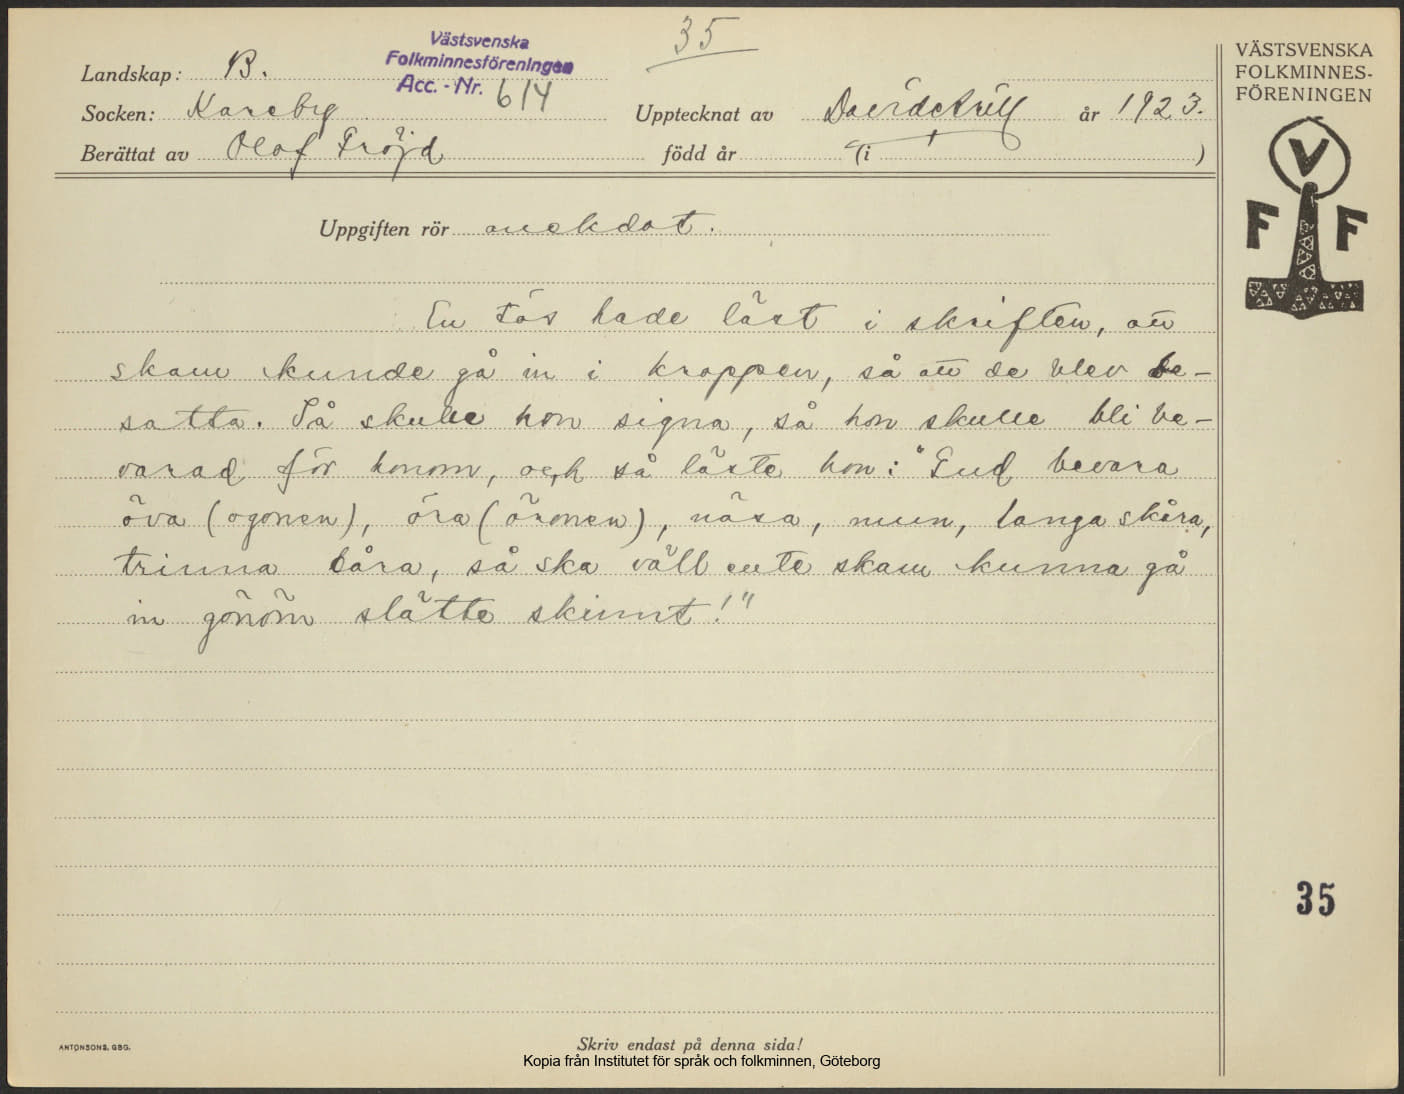 35
Västsvenska
Folkminnesföreningen
Acc. - Nr. 614
Landskap: B.
Socken: Kareby
Upptecknat av David Arill år 1923.
Berättat av Olof Fröjd född år (i )
Uppgiften rör anekdot.
En tös hade läst i skriften, att
skam kunde gå in i kroppen, så att de blev be-
satta. Så skulle hon signa, så hon skulle bli be-
varad för honom, och så läste hon: "Gud bevara
öva (ögonen), öra (öronen), näsa, mun, langa skåra,
trinna båra, så ska väll ente skam kunna gå
in gönöm slätte skinnt!"
VÄSTSVENSKA
FOLKMINNES-
FÖRENINGEN
V
F F
35
ANTONSONS, GBG.
Skriv endast på denna sida!
Kopia från Institutet för språk och folkminnen, Göteborg